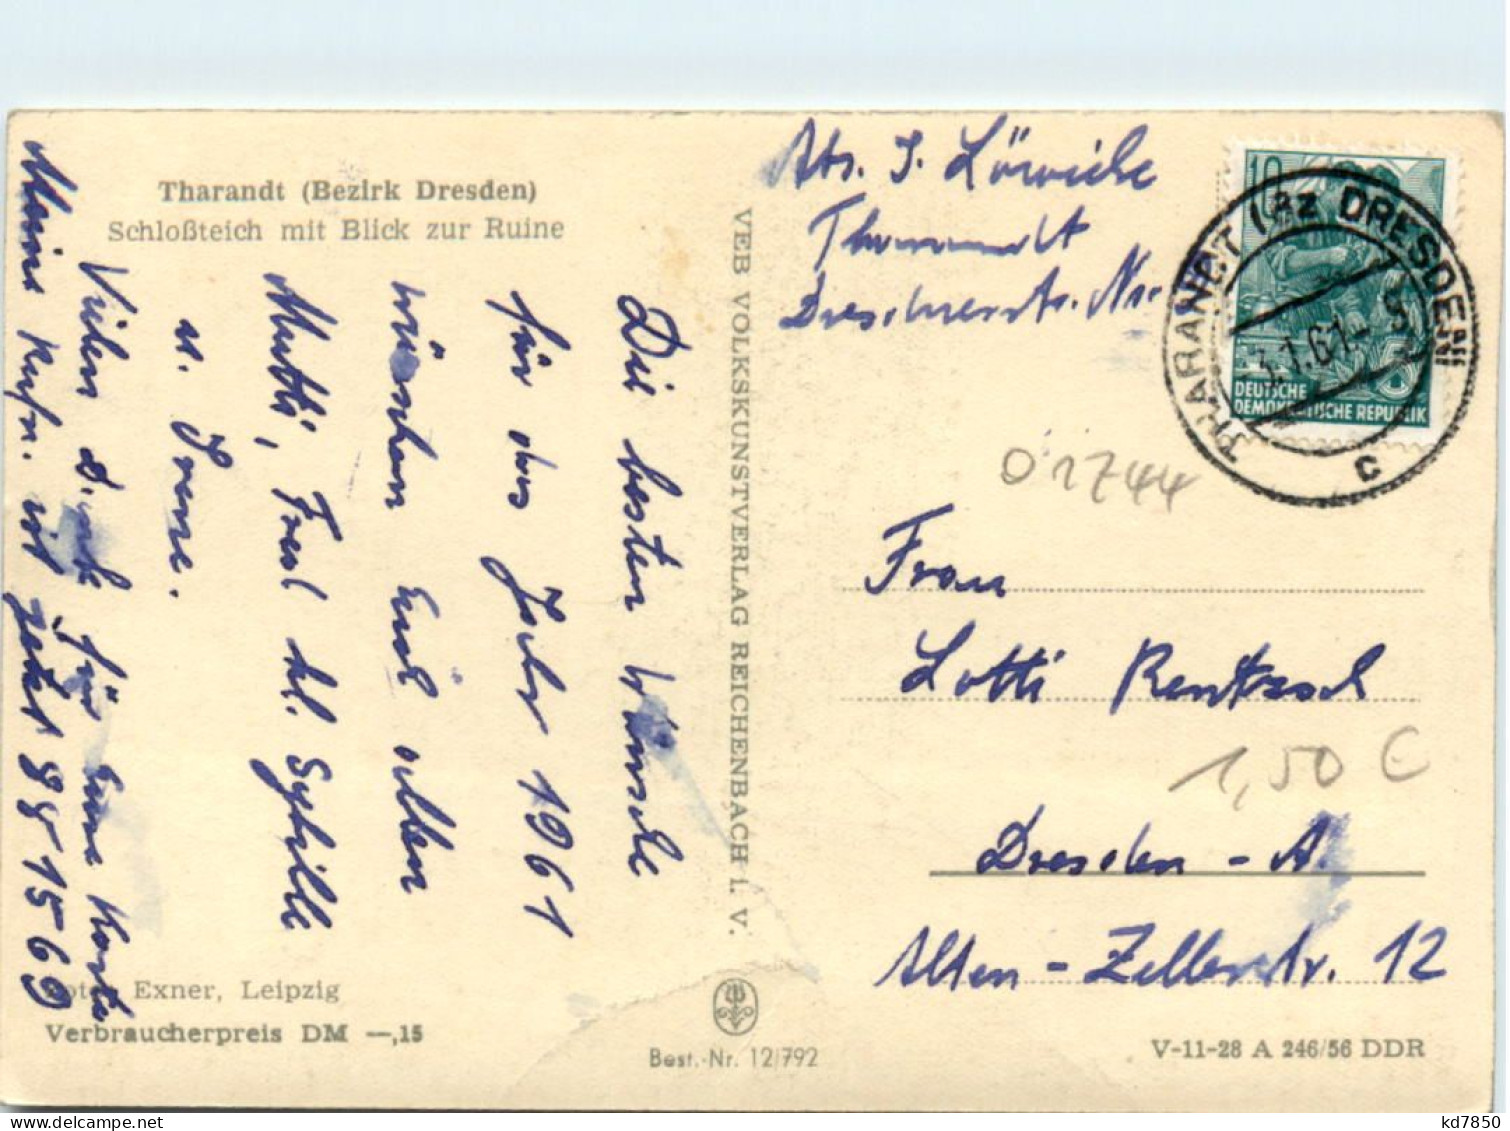 Tharandt (Bezirk Dresden)
Schloßteich mit Blick zur Ruine
Die besten Wünsche
für das Jahr 1961
wünschen Euch allen
Mutti, Fred kl. Sybille
u. Irene.
Vielen Dank für Eure Karte
Meine Rufn. ist jetzt 88 15 69
Exner, Leipzig
Verbraucherpreis DM —,15
VEB VOLKSKUNSTVERLAG REICHENBACH I. V.
Best.-Nr. 12/792
Abs. J.
Tharandt
Dresdnerstr. Nr.
10
DEUTSCHE
DEMOKRATISCHE REPUBLIK
THARANDT (Bz DRESDEN)
3.1.61
C
01744
Frau
Lotti Rentzsch
1,50 €
Dresden - A.
Alten - Zellerstr. 12
V-11-28 A 246/56 DDR
kd7850